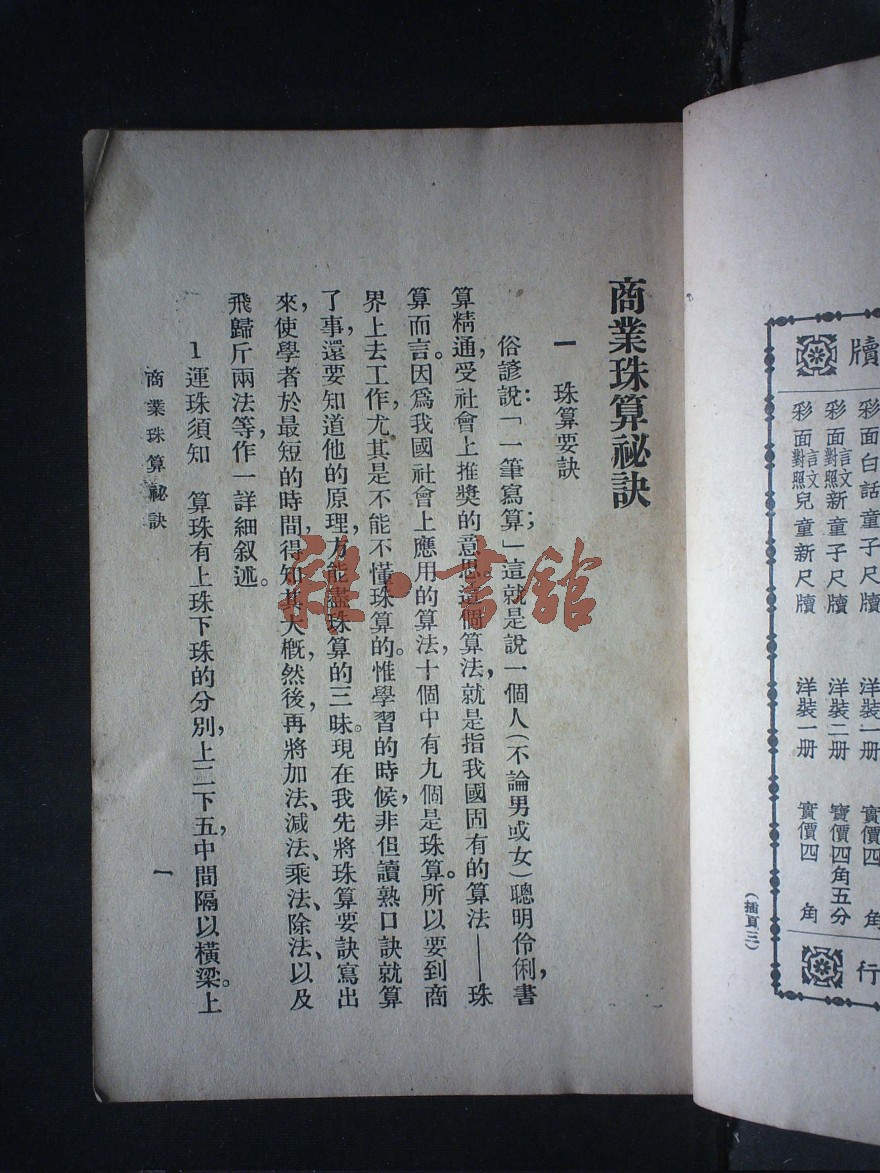 牘
彩面白話童子尺牘　洋裝一册　實價四　角
彩面言文對照新童子尺牘　洋裝二册　實價四角五分
彩面言文對照兒童新尺牘　洋裝一册　實價四　角
行
(插頁三)
商業珠算祕訣
一　珠算要訣
俗諺說：「一筆寫算；」這就是說一個人(不論男或女)聰明伶俐，書
算精通，受社會上推獎的意思。這個算法，就是指我國固有的算法——珠
算而言。因爲我國社會上應用的算法，十個中有九個是珠算。所以要到商
界上去工作，尤其是不能不懂珠算的。惟學習的時候，非但讀熟口訣就算
了事，還要知道他的原理，方能盡珠算的三昧。現在我先將珠算要訣寫出
來，使學者於最短的時間，得知其大概，然後再將加法、減法、乘法、除法、以及
飛歸斤兩法等，作一詳細叙述。
1運珠須知　算珠有上珠下珠的分別，上二下五，中間隔以橫梁。上
商業珠算祕訣
一
雜·書館